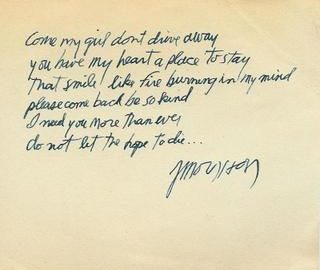 Come my girl don't drive away
you have my heart a place to stay
That smile like fire burning in my mind
please come back be so kind
I need you more than ever
do not let the hope to die...
JMorrison